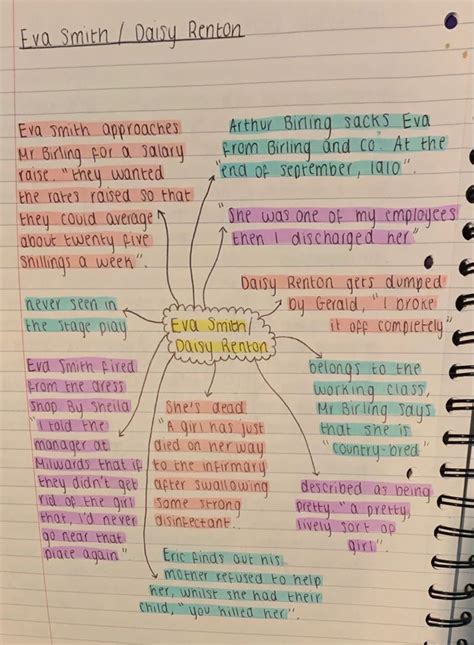 Eva Smith / Daisy Renton
Eva Smith approaches
Mr Birling for a salary
raise. "they wanted
the rates raised so that
they could average
about twenty five
shillings a week".
Arthur Birling sacks Eva
from Birling and co. At the
"end of september, 1910".
"She was one of my employees
then I discharged her"
Daisy Renton gets dumped
by Gerald, "I broke
it off completely"
never seen in
the stage play
Eva Smith/
Daisy Renton
belongs to the
working class,
Mr Birling says
that she is
"country-bred"
Eva Smith fired
from the dress
shop By Sheila
"I told the
manager at
Milwards that if
they didn't get
rid of the girl
that, I'd never
go near that
place again"
She's dead
"A girl has just
died on her way
to the infirmary
after swallowing
some strong
disinfectant..
described as being
pretty. "a pretty,
lively sort of
girl".
Eric finds out his
mother refused to help
her, whilst she had their
child, "you killed her".